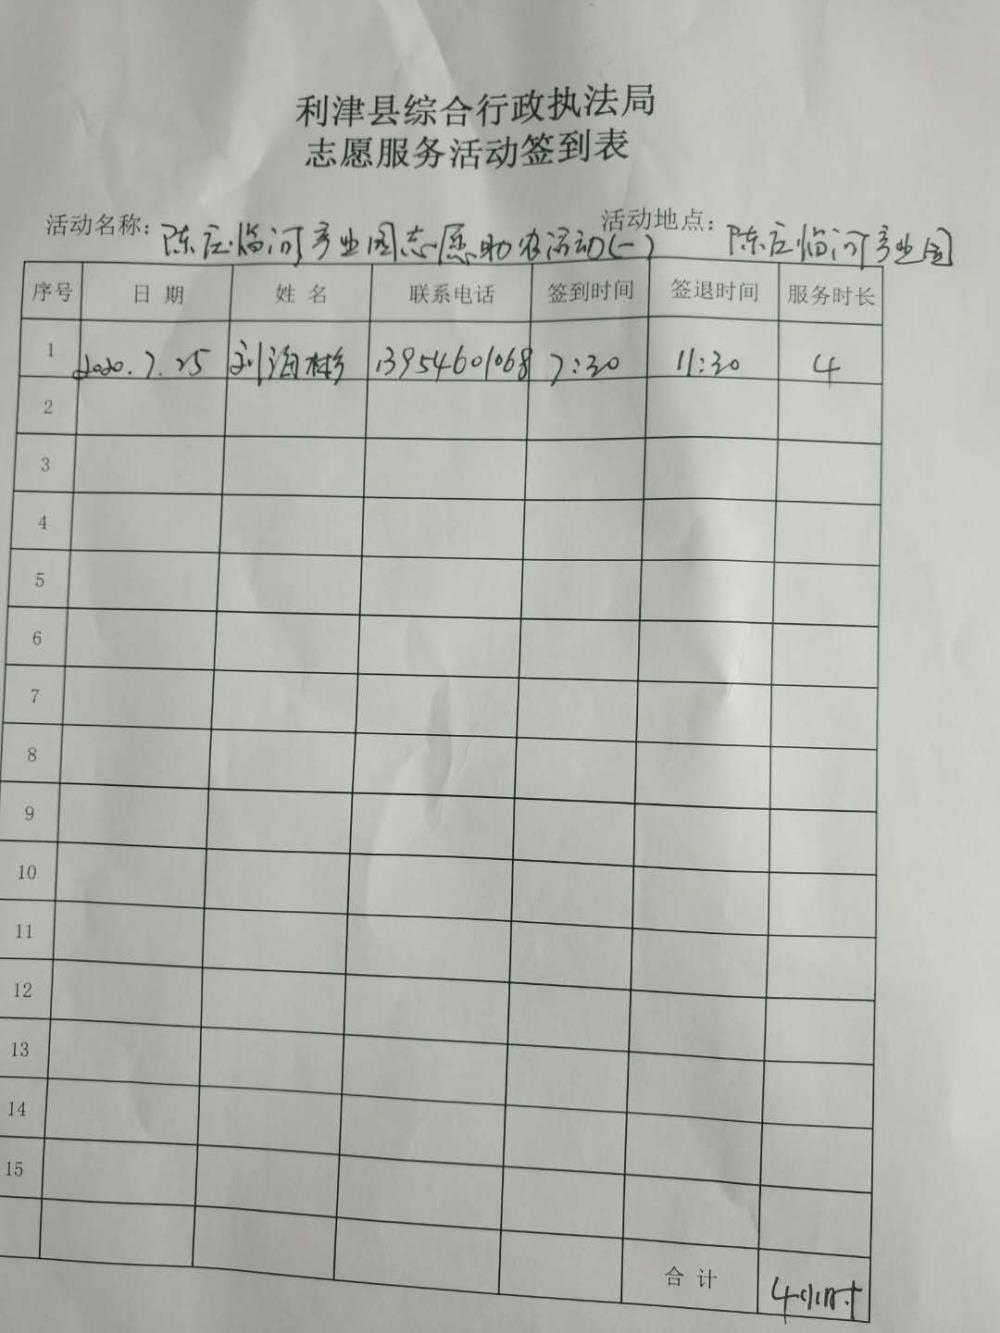 利津县综合行政执法局
志愿服务活动签到表
活动名称：陈庄临河产业园志愿助农活动(一) 活动地点：陈庄临河产业园
序号 日期 姓名 联系电话 签到时间 签退时间 服务时长
1 2020.7.25 刘海彬 13954601068 7:30 11:30 4
2
3
4
5
6
7
8
9
10
11
12
13
14
15
合计 4小时